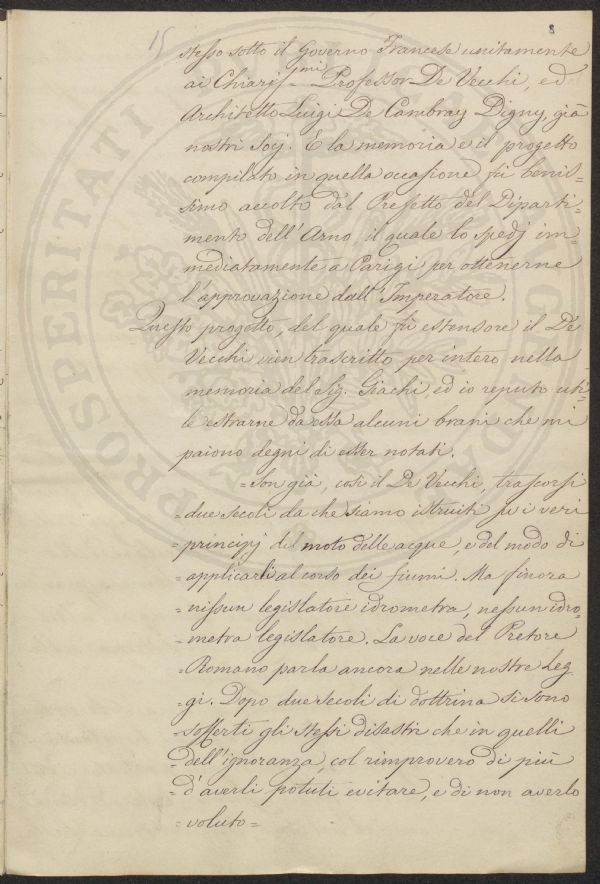 15
8
stesso sotto il Governo Francese unitamente
ai Chiariss.mi Professor De Vecchi, ed
Architetto Luigi De Cambray Digny, già
nostri Socj. E la memoria e il progetto
compilato in quella occasione fù benis-
simo accolto dal Prefetto del Diparti-
mento dell'Arno il quale lo spedj im-
mediatamente a Parigi per ottenerne
l'approvazione dall'Imperatore.
Questo progetto, del quale fù estensore il De
Vecchi vien trascritto per intero nella
memoria del Sig. Giachi, ed io reputo uti-
le estrarne da essa alcuni brani che mi
paiono degni di esser notati.
=Son già, così il De Vecchi, trascorsi
=due secoli da che siamo istruiti su i veri
=principj del moto delle acque, e del modo di
=applicarli al corso dei fiumi. Ma finora
=nissun legislatore idrometra, nessun idro-
=metra legislatore. La voce del Pretore
=Romano parla ancora nelle nostre Leg-
=gi. Dopo due secoli di dottrina si sono
=sofferti gli stessi disastri che in quelli
=dell'ignoranza, col rimprovero di più
=d'averli potuti evitare, e di non averlo
=voluto=
PROSPERITATI